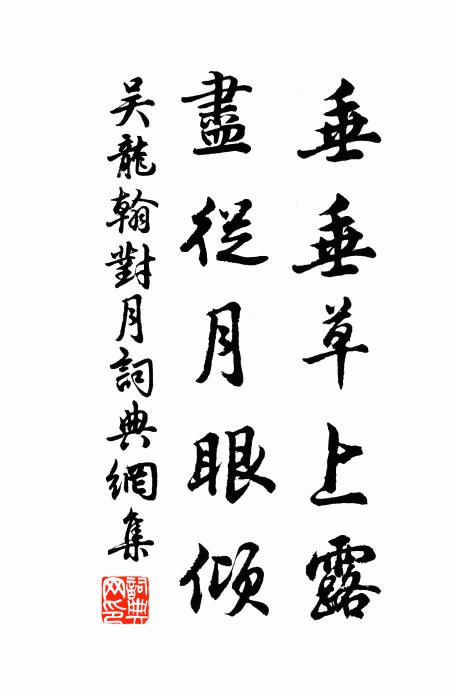 垂垂草上露
盡從月眼傾
吴龍翰對月詞典網集
詞典
网印